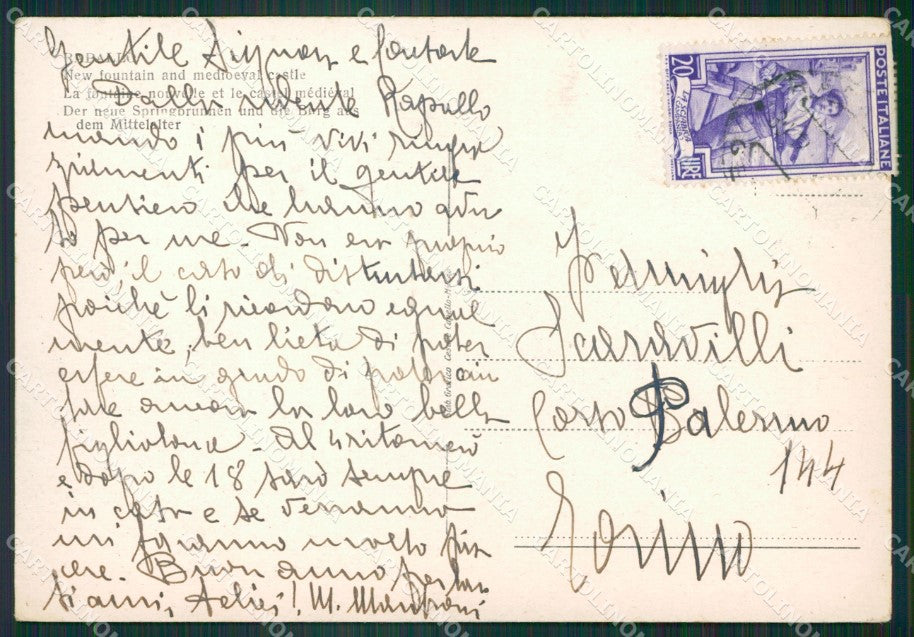 Gentile Signora e Consorte
RODALLO
New fountain and medioeval castle
La fontaine nouvelle et le castel médiéval
Der neue Springbrunnen und die Burg aus
dem Mittelalter
Dalla ridente Rapallo
mando i più vivi ringra
ziamenti per il gentile
pensiero che hanno avu
to per me. Non era proprio
però il caso di disturbarsi
poichè li ricordavo egual
mente, ben lieta di poter
essere in grado di poter aiu
tare ancora la loro bella
figliolona. Al 4 ritornerò
e dopo le 18 sarò sempre
in casa e se verranno
mi faranno molto pia
cere. Buon anno per tan
ti anni, felici! M.
20
LIRE
POSTE ITALIANE
Famiglia
Scaravilli
Corso Palermo
144
Torino
CARTOLINOMANIA